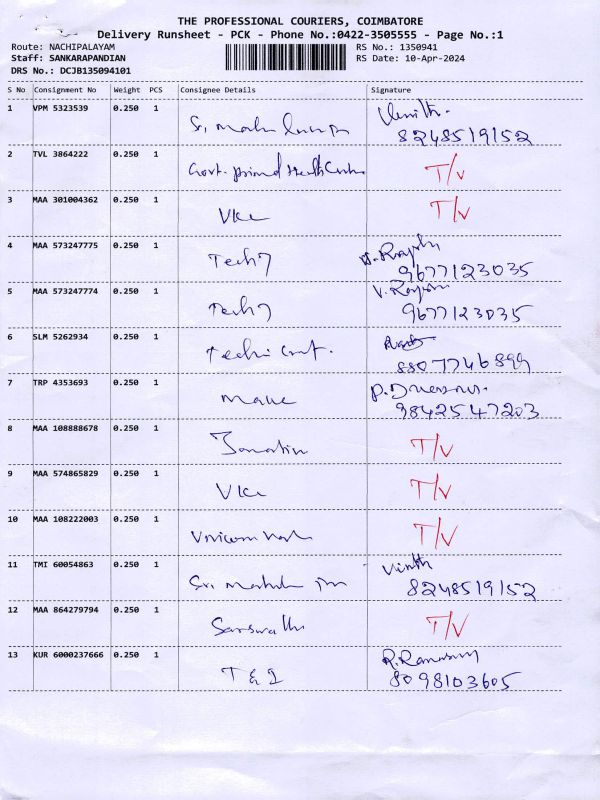 THE PROFESSIONAL COURIERS, COIMBATORE
Delivery Runsheet - PCK - Phone No.:0422-3505555 - Page No.:1
Route: NACHIPALAYAM RS No.: 1350941
Staff: SANKARAPANDIAN RS Date: 10-Apr-2024
DRS No.: DCJB135094101
S No Consignment No Weight PCS Consignee Details Signature
1 VPM 5323539 0.250 1
8248519152
2 TVL 3864222 0.250 1
Govt. T/V
3 MAA 301004362 0.250 1
T/V
4 MAA 573247775 0.250 1
Tech7 9677123035
5 MAA 573247774 0.250 1
Tech7 9677123035
6 SLM 5262934 0.250 1
8807746899
7 TRP 4353693 0.250 1
9842547203
8 MAA 108888678 0.250 1
T/V
9 MAA 574865829 0.250 1
T/V
10 MAA 108222003 0.250 1
T/V
11 TMI 60054863 0.250 1
Sri 8248519152
12 MAA 864279794 0.250 1
T/V
13 KUR 6000237666 0.250 1
8098103605